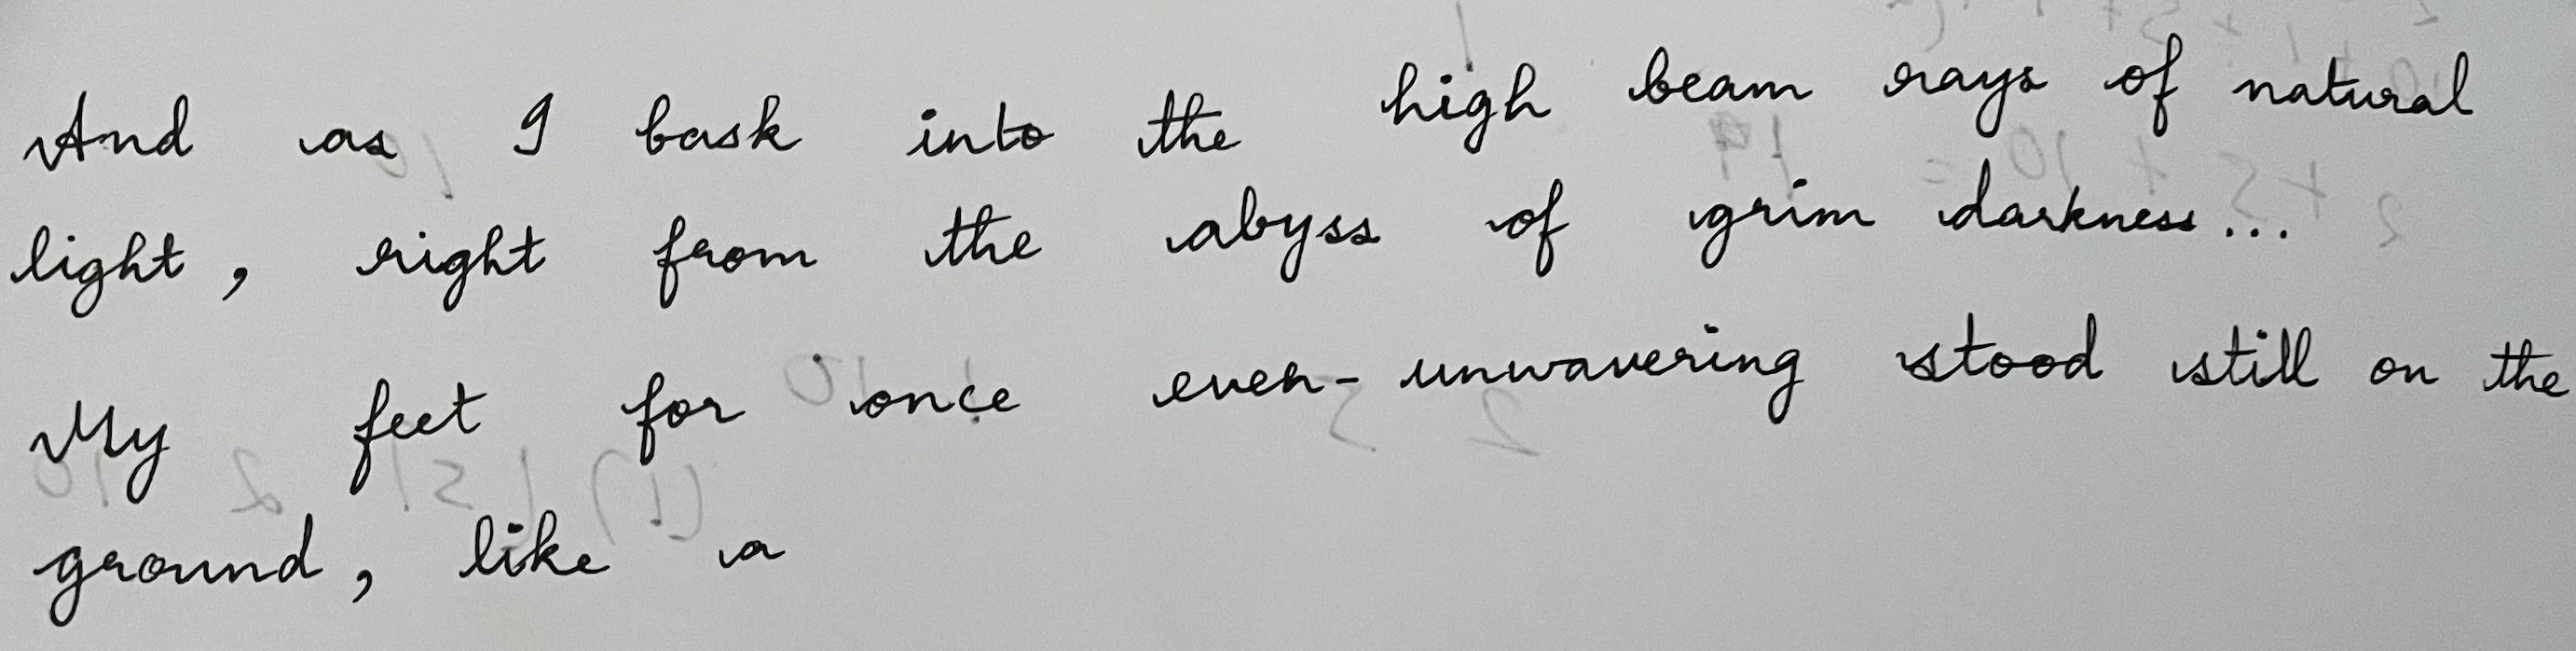 And as I bask into the high beam rays of natural
light, right from the abyss of grim darkness...
My feet for once even-unwavering stood still on the
ground, like a